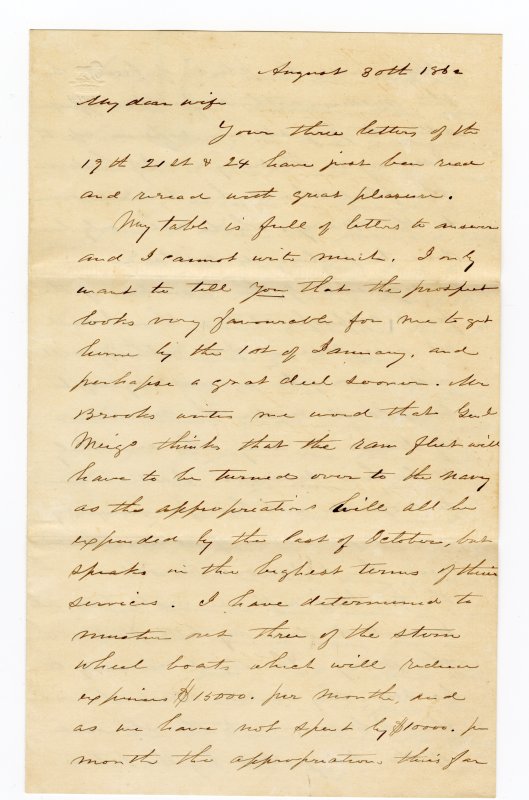 August 30th 1862
My dear wife
Your three letters of the
19th 21st & 24 have just been read
and reread with great pleasure.
My table is full of letters to answer
and I cannot write much. I only
want to tell you that the prospect
looks very favourable for me to get
home by the 1st of January, and
perhapse a great deel sooner. Mr
Brooks writes me word that Genl
Meigs thinks that the ram fleet will
have to be turned over to the navy
as the appropriations will all be
expended by the last of October, but
speaks in the highest terms of their
services. I have determined to
muster out three of the stern
wheel boats which will reduce
expenses $15000. per month, and
as we have not spent by $10000. pr
month the appropriation thus far